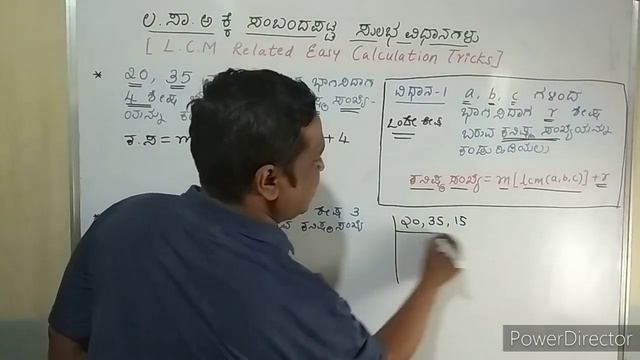 ಲ.ಸಾ.ಅ ಕ್ಕೆ ಸಂಬಂದಪಟ್ಟ ಸುಲಭ ವಿಧಾನಗಳು
[ L.C.M Related Easy Calculation Tricks]
* ೨೦, 35 ಭಾಗಿಸಿದಾಗ
4 ಶೇಷ ಸಂಖ್ಯೆ-
ಯನ್ನು
ಕ.ಸ = m + 4
ಶೇಷ 3
ಕನಿಷ್ಠ ಸಂಖ್ಯೆ
ವಿಧಾನ-1 a, b, c ಗಳಿಂದ
ಭಾಗಿಸಿದಾಗ r ಶೇಷ
ಒಂದೇ ಶೇಷ ಬರುವ ಕನಿಷ್ಠ ಸಂಖ್ಯೆಯನ್ನು
ಕಂಡು ಹಿಡಿಯಲು
ಕನಿಷ್ಠ ಸಂಖ್ಯೆ = m[lcm(a,b,c)]+r
೨೦, 35, 15
PowerDirector